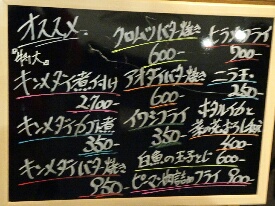 オススメ
特大
キンメダイ煮付け
2,700-
キンメダイカブト煮
350-
キンメダイバタ焼き
950-
クロムツバタ焼き
600-
アオダイバタ焼き
600-
イワシフライ
350-
白魚の玉子とじ 600-
ピーマン肉詰めフライ 800-
ヒラメフライ
900-
ニラ玉
250-
ホタルイカと
400-